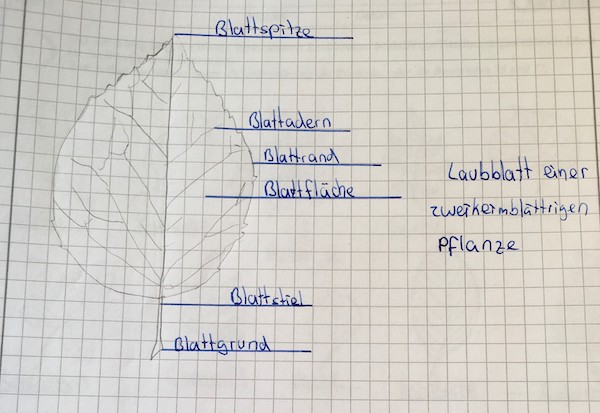 Blattspitze
Blattadern
Blattrand
Blattfläche
Laubblatt einer
zweikeimblättrigen
Pflanze
Blattstiel
Blattgrund